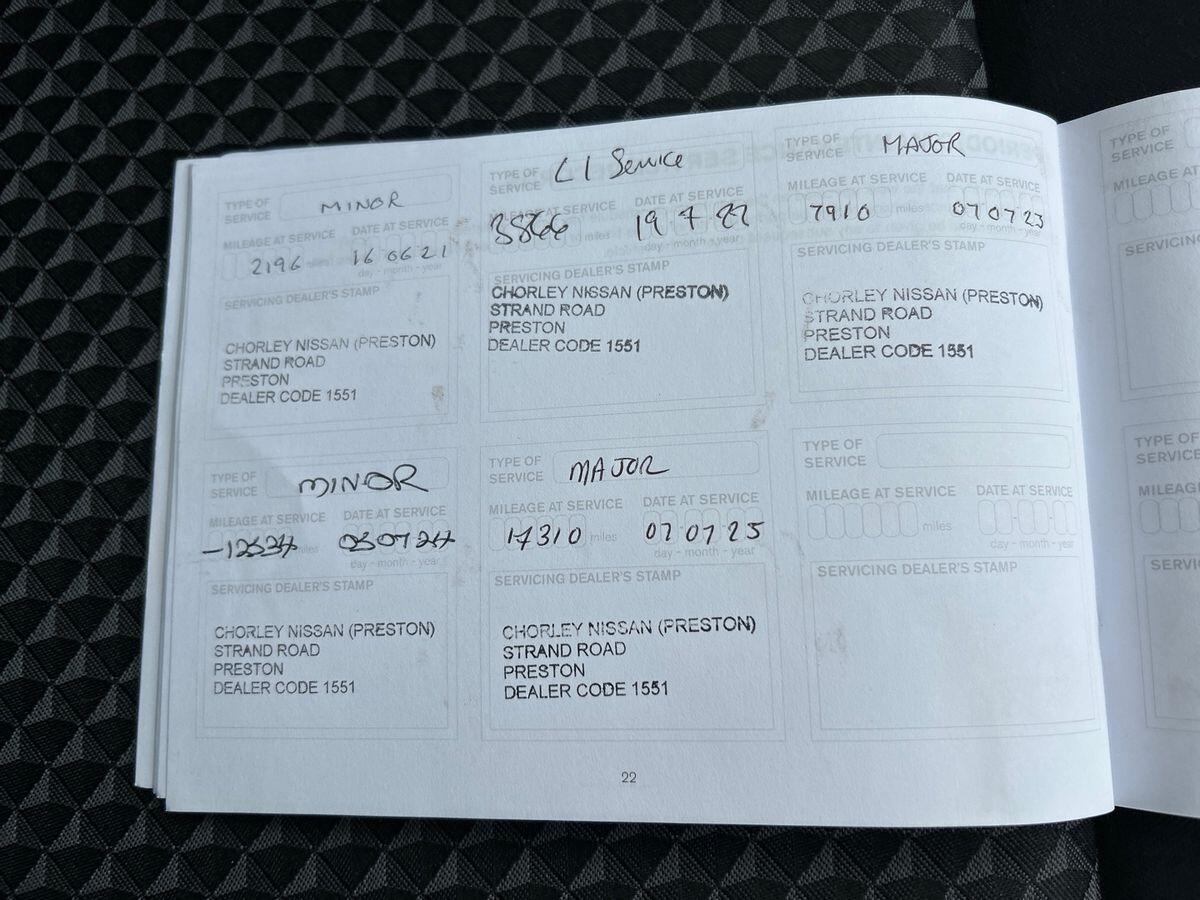 TYPE OF SERVICE MINOR
MILEAGE AT SERVICE DATE AT SERVICE
2196 miles 16 06 21
day - month - year
SERVICING DEALER'S STAMP
CHORLEY NISSAN (PRESTON)
STRAND ROAD
PRESTON
DEALER CODE 1551
TYPE OF SERVICE Service
MILEAGE AT SERVICE DATE AT SERVICE
3866 miles 19 7 22
day - month - year
SERVICING DEALER'S STAMP
CHORLEY NISSAN (PRESTON)
STRAND ROAD
PRESTON
DEALER CODE 1551
TYPE OF SERVICE MAJOR
MILEAGE AT SERVICE DATE AT SERVICE
7910 miles 07 07 23
day - month - year
SERVICING DEALER'S STAMP
CHORLEY NISSAN (PRESTON)
STRAND ROAD
PRESTON
DEALER CODE 1551
TYPE OF SERVICE MINOR
MILEAGE AT SERVICE DATE AT SERVICE
miles
day - month - year
SERVICING DEALER'S STAMP
CHORLEY NISSAN (PRESTON)
STRAND ROAD
PRESTON
DEALER CODE 1551
TYPE OF SERVICE MAJOR
MILEAGE AT SERVICE DATE AT SERVICE
17310 miles 07 07 25
day - month - year
SERVICING DEALER'S STAMP
CHORLEY NISSAN (PRESTON)
STRAND ROAD
PRESTON
DEALER CODE 1551
TYPE OF SERVICE
MILEAGE AT SERVICE DATE AT SERVICE
miles
day - month - year
SERVICING DEALER'S STAMP
22
TYPE OF
SERVICE
MILEAGE AT
TYPE OF
SERVICE